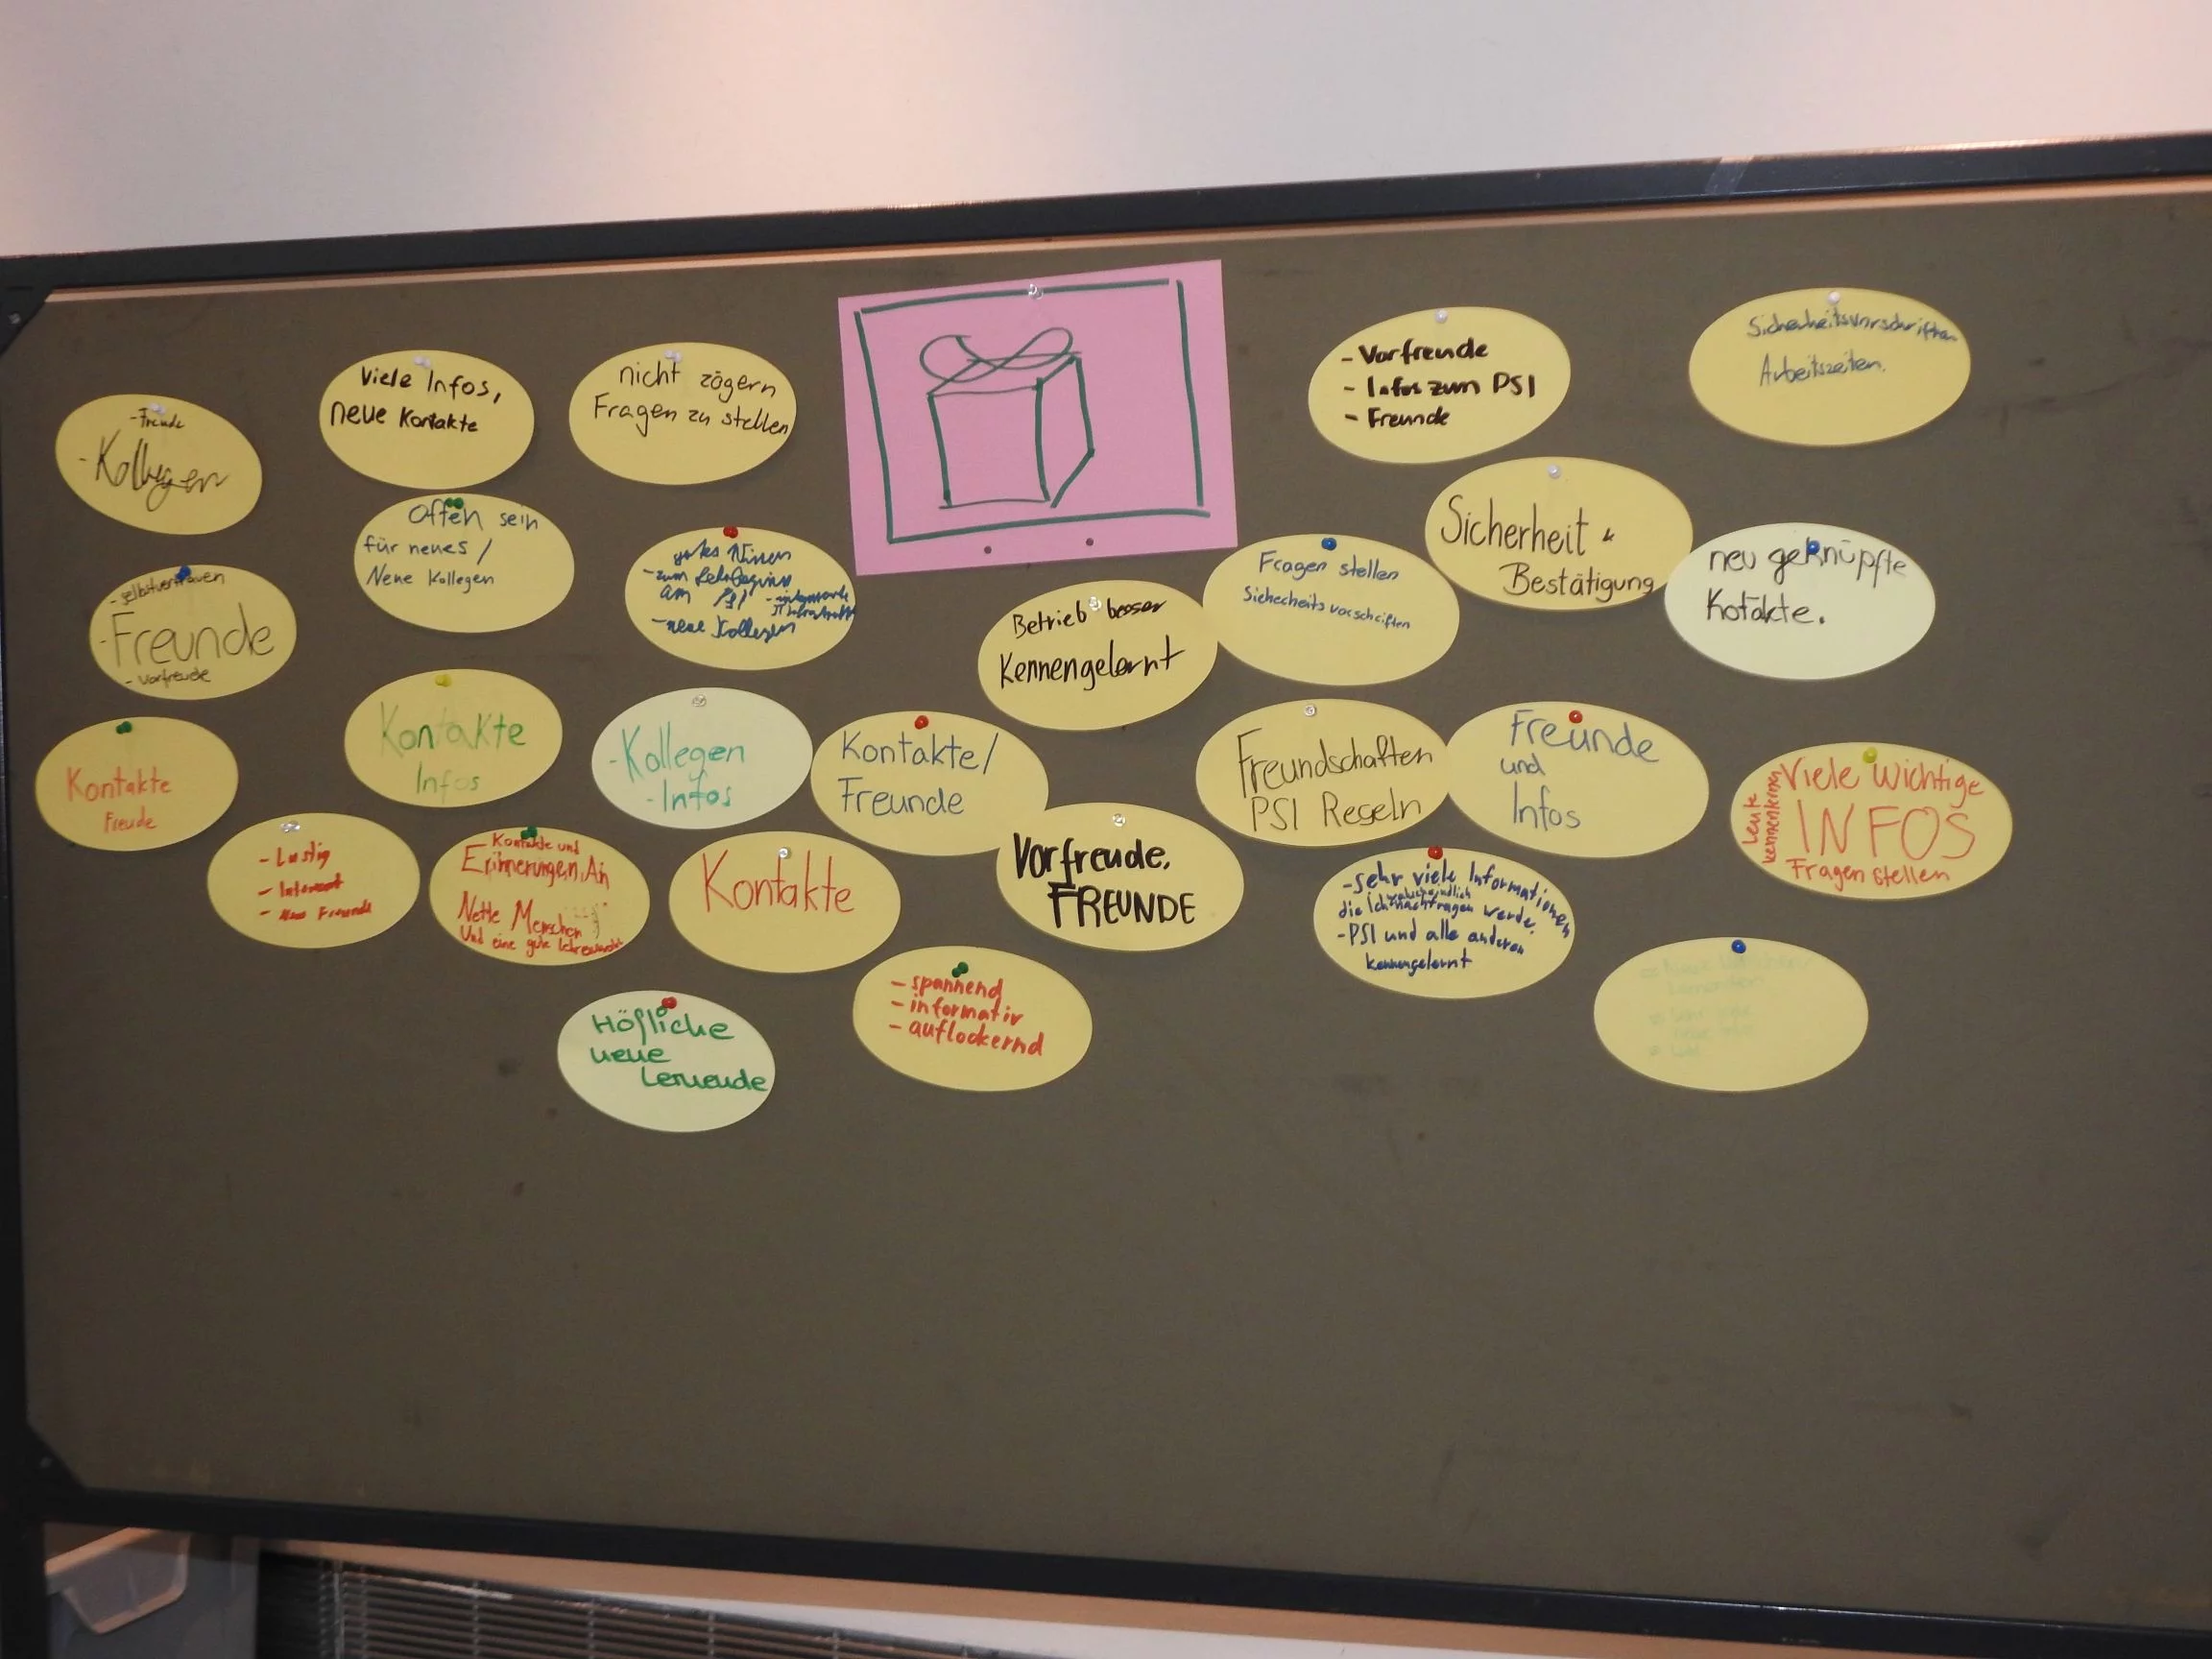 - Freude
- Kollegen
Viele Infos,
neue Kontakte
nicht zögern
Fragen zu stellen
- Vorfreude
- Infos zum PSI
- Freunde
Sicherheitsvorschriften
Arbeitszeiten.
Offen sein
für neues /
Neue Kollegen
- zum
am PSI
- neue Kollegen
Sicherheit &
Bestätigung
Fragen stellen
Sicherheitsvorschriften
neu geknüpfte
Kotakte.
- selbstvertrauen
- Freunde
- Vorfreude
Betrieb besser
Kennengelernt
Kontakte
Freude
Kontakte
Infos
- Kollegen
- Infos
Kontakte/
Freunde
Freundschaften
PSI Regeln
Freunde
und
Infos
Viele Wichtige
INFOS
Fragen stellen
Leute
kennenlernen
- Lustig
-
- Neue Freunde
Kontakte und
Erinnerungen An
Nette Menschen
Und eine gute
Kontakte
Vorfreude,
FREUNDE
- sehr viele Informationen
die Ich nachfragen werde.
- PSI und alle anderen
kennengelernt
- spannend
- informativ
- auflockernd
Höfliche
neue
Lernende